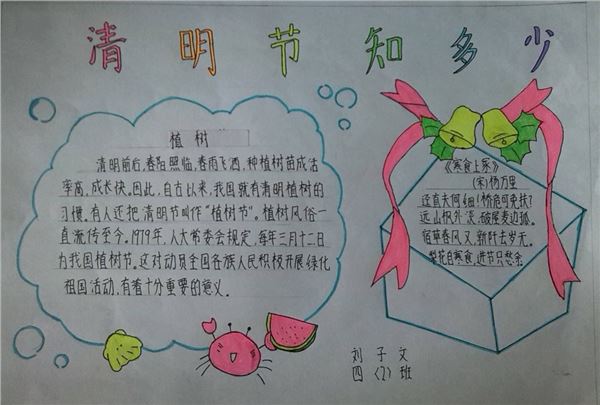 清明节知多少
植树
清明前后，春阳照临，春雨飞洒，种植树苗成活
率高，成长快。因此，自古以来，我国就有清明植树的
习惯。有人还把清明节叫作“植树节”。植树风俗一
直流传至今。1979年，人大常委会规定，每年三月十二日
为我国植树节。这对动员全国各族人民积极开展绿化
祖国活动，有着十分重要的意义。
《寒食上冢》
（宋）杨万里
迳直夫何细！桥危可免扶？
远山枫外淡，破屋麦边孤。
宿草春风又，新阡去岁无。
梨花自寒食，进节只愁余
刘子文
四（2）班